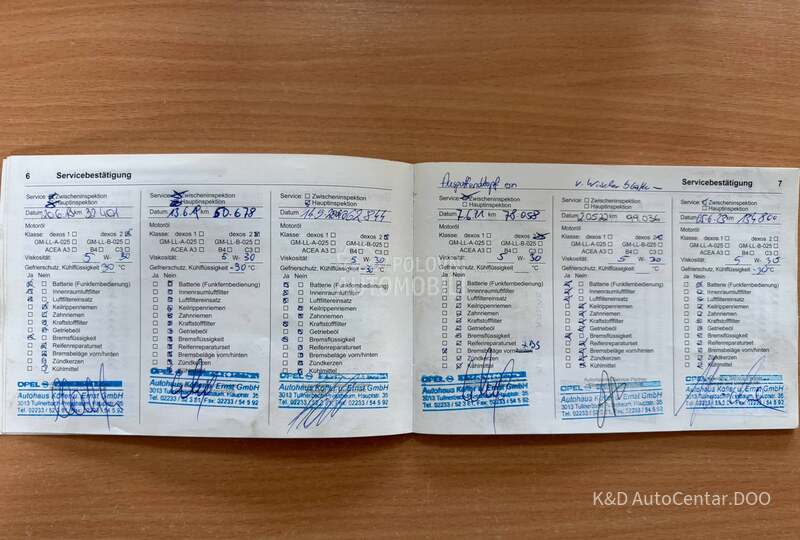 6 Servicebestätigung
Service: Zwischeninspektion
Hauptinspektion
Datum km
Motoröl
Klasse: dexos 1 dexos 2
GM-LL-A-025 GM-LL-B-025
ACEA A3 B4 C3
Viskosität: 5 W- 30
Gefrierschutz, Kühlflüssigkeit -30 °C
Ja Nein
Batterie (Funkfernbedienung)
Innenraumluftfilter
Luftfiltereinsatz
Keilrippenriemen
Zahnriemen
Kraftstofffilter
Getriebeöl
Bremsflüssigkeit
Reifenreparaturset
Bremsbeläge vorn/hinten
Zündkerzen
Kühlmittel
OPEL
Autohaus Kofler u. Ernst GmbH
Tel. 02233 / 52 3 81, Fax: 02233 / 54 5 92
Service: Zwischeninspektion
Hauptinspektion
Datum km 50.678
Motoröl
Klasse: dexos 1 dexos 2
GM-LL-A-025 GM-LL-B-025
ACEA A3 B4 C3
Viskosität: 5 W- 30
Gefrierschutz, Kühlflüssigkeit -30 °C
Ja Nein
Batterie (Funkfernbedienung)
Innenraumluftfilter
Luftfiltereinsatz
Keilrippenriemen
Zahnriemen
Kraftstofffilter
Getriebeöl
Bremsflüssigkeit
Reifenreparaturset
Bremsbeläge vorn/hinten
Zündkerzen
Kühlmittel
OPEL
Autohaus Kofler u. Ernst GmbH
Tel. 02233 / 52 3 81, Fax: 02233 / 54 5 92
Service: Zwischeninspektion
Hauptinspektion
Datum
Motoröl
Klasse: dexos 1 dexos 2
GM-LL-A-025 GM-LL-B-025
ACEA A3 B4 C3
Viskosität: 5 W- 30
Gefrierschutz, Kühlflüssigkeit -30 °C
Ja Nein
Batterie (Funkfernbedienung)
Innenraumluftfilter
Luftfiltereinsatz
Keilrippenriemen
Zahnriemen
Kraftstofffilter
Getriebeöl
Bremsflüssigkeit
Reifenreparaturset
Bremsbeläge vorn/hinten
Zündkerzen
Kühlmittel
OPEL
Autohaus Kofler u. Ernst GmbH
Tel. 02233 / 52 3 81, Fax: 02233 / 54 5 92
Servicebestätigung 7
Service: Zwischeninspektion
Hauptinspektion
Datum km 78 058
Motoröl
Klasse: dexos 1 dexos
GM-LL-A-025 GM-LL-B-025
ACEA A3 B4 C3
Viskosität: 5 W- 30
Gefrierschutz, Kühlflüssigkeit °C
Ja Nein
Batterie (Funkfernbedienung)
Innenraumluftfilter
Luftfiltereinsatz
Keilrippenriemen
Zahnriemen
Kraftstofffilter
Getriebeöl
Bremsflüssigkeit
Reifenreparaturset
Bremsbeläge vorn/hinten
Zündkerzen
Kühlmittel
OPEL
Autohaus Kofler u. Ernst GmbH
Tel. 02233 / 52 3 81, Fax: 02233 / 54 5 92
Service: Zwischeninspektion
Hauptinspektion
Datum km 99.036
Motoröl
Klasse: dexos 1 dexos 2
GM-LL-A-025 GM-LL-B-025
ACEA A3 B4 C3
Viskosität: 5 W- 30
Gefrierschutz, Kühlflüssigkeit °C
Ja Nein
Batterie (Funkfernbedienung)
Innenraumluftfilter
Luftfiltereinsatz
Keilrippenriemen
Zahnriemen
Kraftstofffilter
Getriebeöl
Bremsflüssigkeit
Reifenreparaturset
Bremsbeläge vorn/hinten
Zündkerzen
Kühlmittel
OPEL
Autohaus Kofler u. Ernst GmbH
Tel. 02233 / 52 3 81, Fax: 02233 / 54 5 92
Service: Zwischeninspektion
Hauptinspektion
Datum km
Motoröl
Klasse: dexos 1 dexos 2
GM-LL-A-025 GM-LL-B-025
ACEA A3 B4 C3
Viskosität: 5 W- 30
Gefrierschutz, Kühlflüssigkeit -30 °C
Ja Nein
Batterie (Funkfernbedienung)
Innenraumluftfilter
Luftfiltereinsatz
Keilrippenriemen
Zahnriemen
Kraftstofffilter
Getriebeöl
Bremsflüssigkeit
Reifenreparaturset
Bremsbeläge vorn/hinten
Zündkerzen
Kühlmittel
OPEL
Autohaus Kofler u. Ernst GmbH
Tel. 02233 / 52 3 81, Fax: 02233 / 54 5 92
K&D AutoCentar.DOO